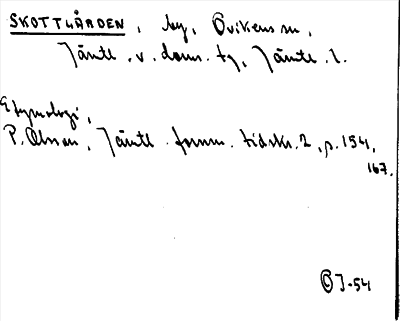 SKOTTGÅRDEN, by, Ovikens sn,
Jämtl. v. doms. tg, Jämtl. l.
Etymologi,
P. Olsson, Jämtl. fornm. tidskr. 2, p. 154,
167.
OJ-54